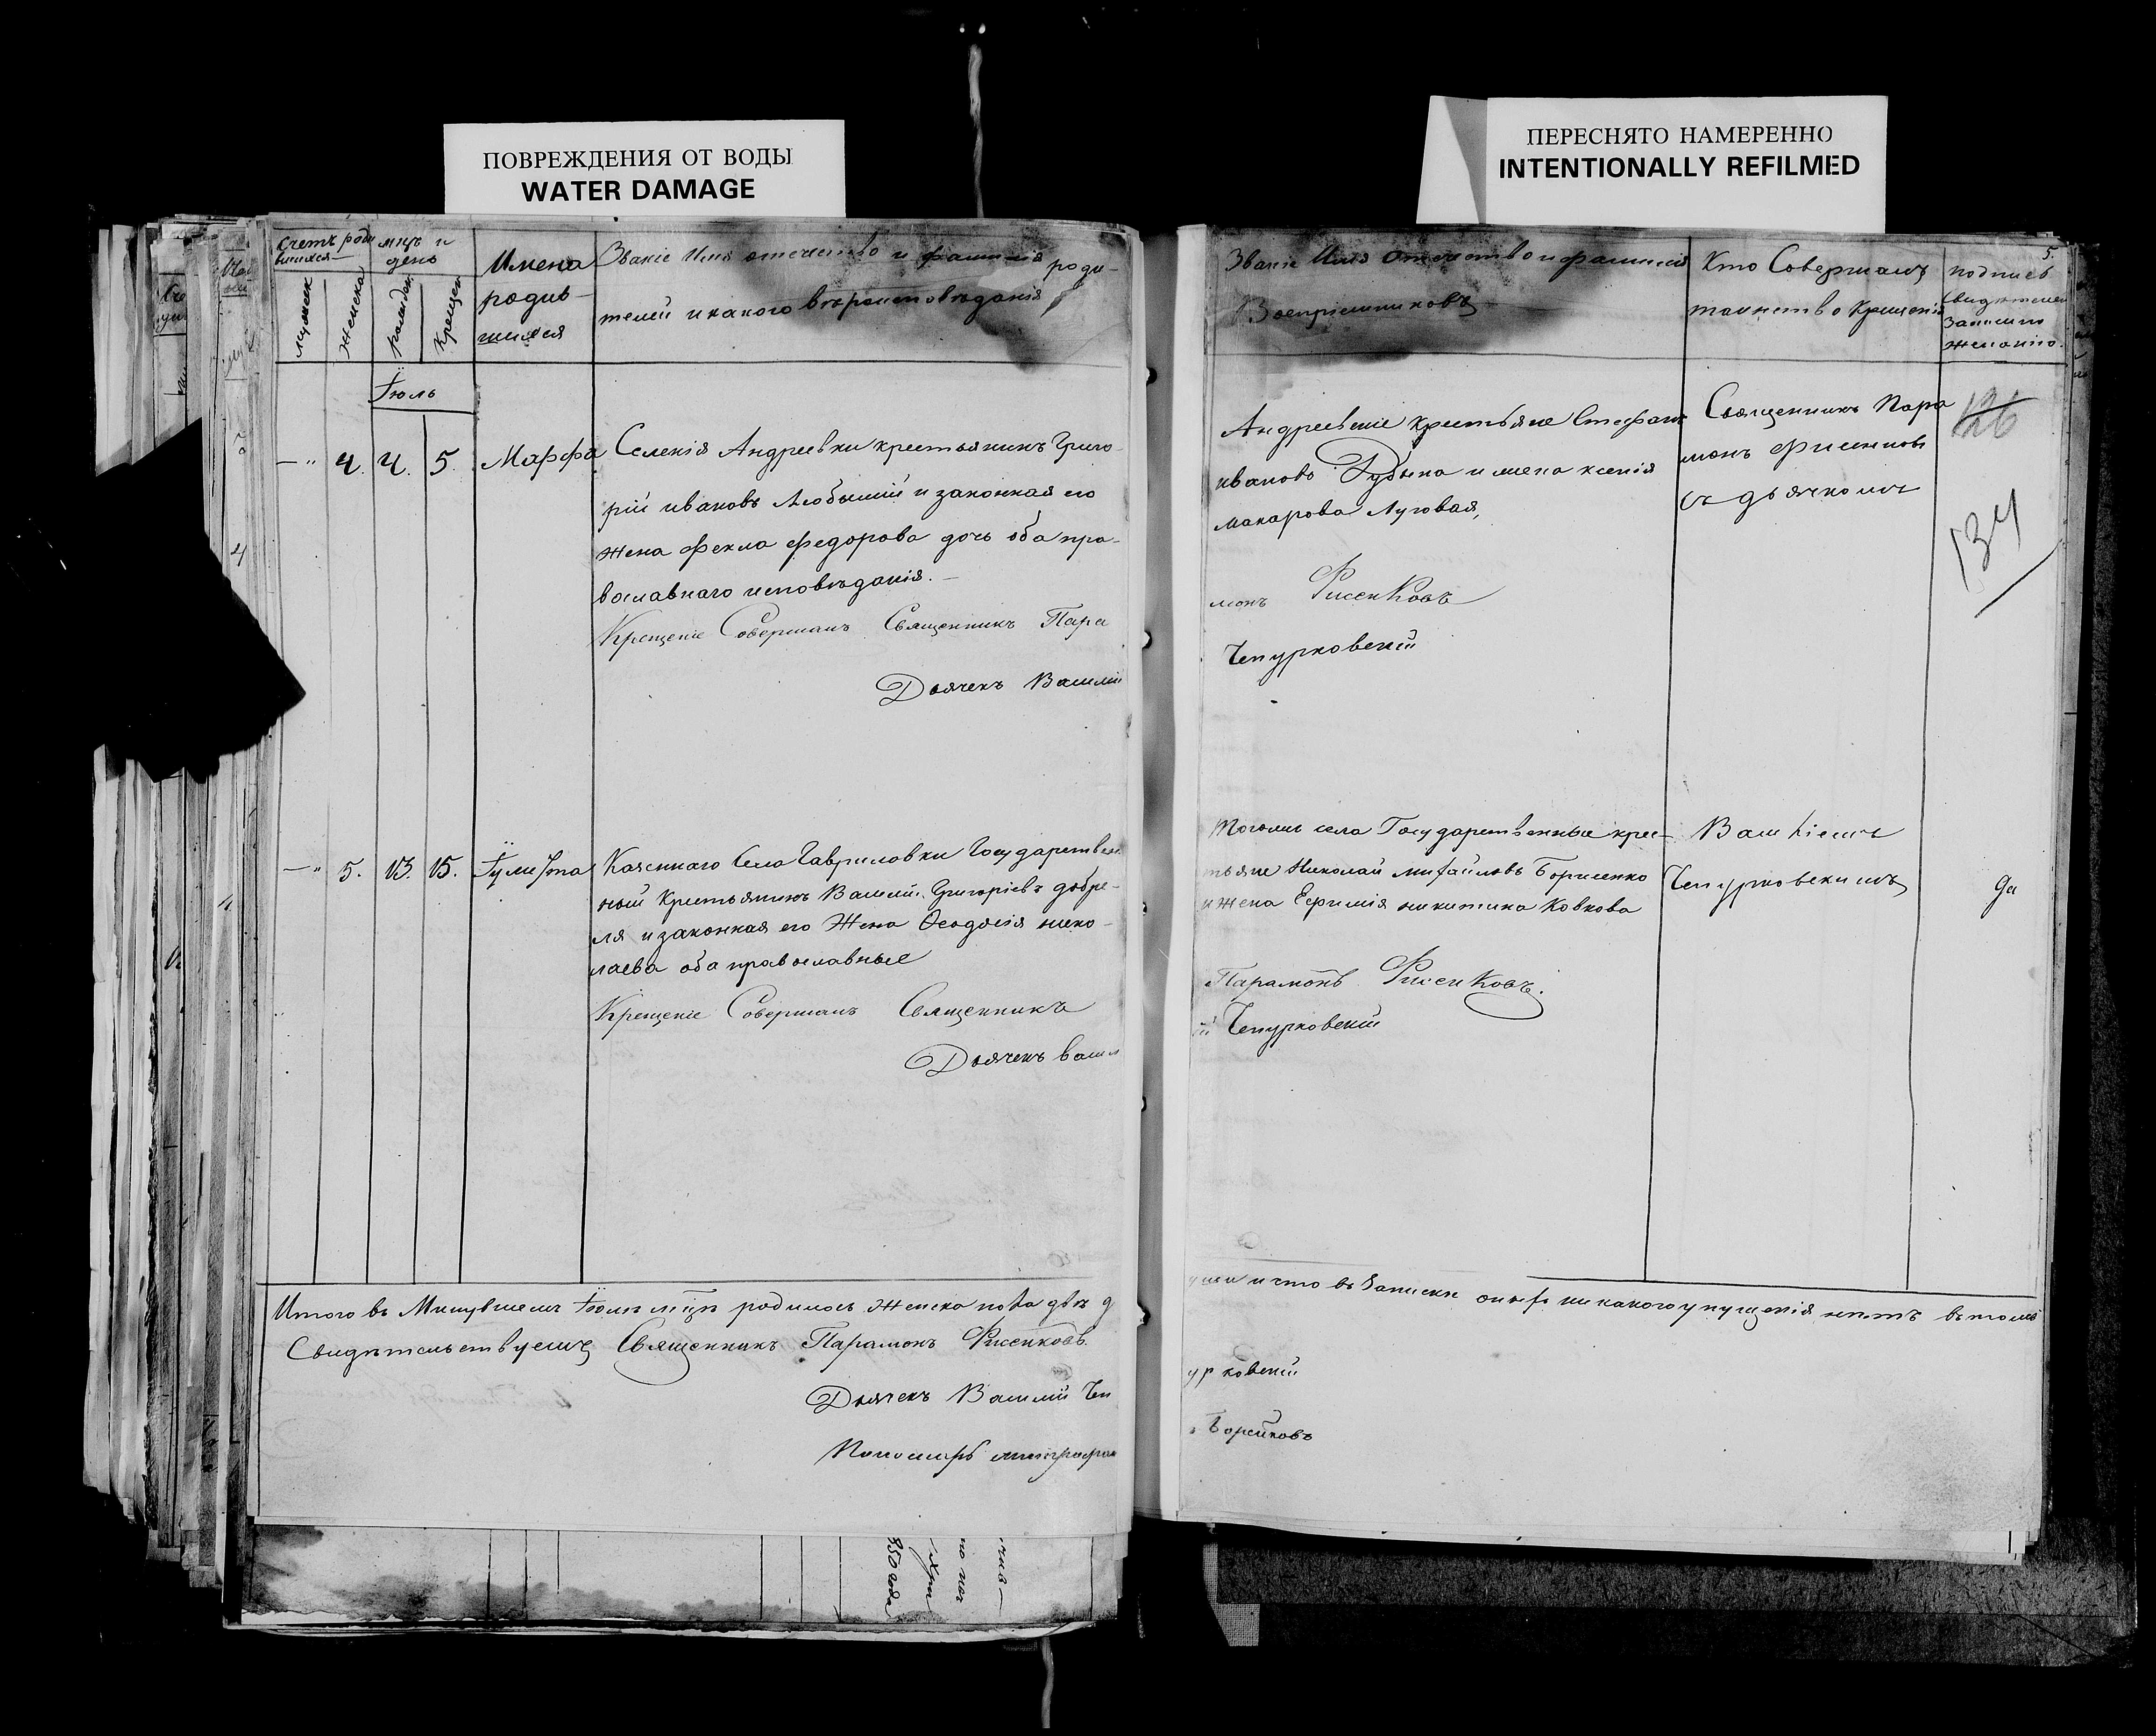 ПОВРЕЖДЕНИЯ ОТ ВОДЫ
WATER DAMAGE
ПЕРЕСНЯТО НАМЕРЕННО
INTENTIONALLY REFILMED
Счетъ роди
вшихся
мцъ и
день
Имена
родив-
шихся
Званіе Имя отечество и фамилія роди-
телей и какого вѣроисповѣданія
мужеск
женска
рожден
крещен
Іюль
4. 4. 5. Марфа
Селенія Андреевки крестьянинъ Григо-
рій ивановъ Любымый и законная его
жена Фекла Федорова дочь оба пра-
вославнаго исповѣданія.
Крещеніе Совершалъ Священникъ Пара
Дьячекъ Василій
5. 13. 15. Іулитта
Казеннаго Села Гавриловки Государствен
ный крестьянинъ Василій Григорьевъ добре-
ля и законная его Жена Феодосія нико-
лаева оба православные
Крещеніе Совершалъ Священникъ
Дьячекъ васил
Итого въ Минувшемъ Іюлѣ мцѣ родилось женска пола двѣ д
Свидѣтельствуемъ Священникъ Парамонъ Фисенковъ.
Дьячекъ Василій Чеп
Пономарь митрофан
950 года
5.
Званіе Имя Отечество и фамилія
Воспріемниковъ
Кто Совершалъ
таинство Крещенія
подпись
свидѣтелей
записи по
желанію.
Андреевскіе крестьяне Стефанъ
ивановъ Дубына и жена ксенія
макарова Луговая,
Священникъ Пара
монъ Фисенковъ
съ дьячкомъ
126
134
монъ Фисенковъ
Чепурковскій
Тогожъ села Государственные крес-
тьяне Николай михайловъ Борисенко
и жена Ефимія никитина Ковкова
Василіемъ
Чепурковскимъ
Парамонъ Фисенковъ.
й Чепурковскій
уши и что въ Записки оныхъ никакого упущенія нѣтъ въ томъ
урковскій
ъ Борейковъ